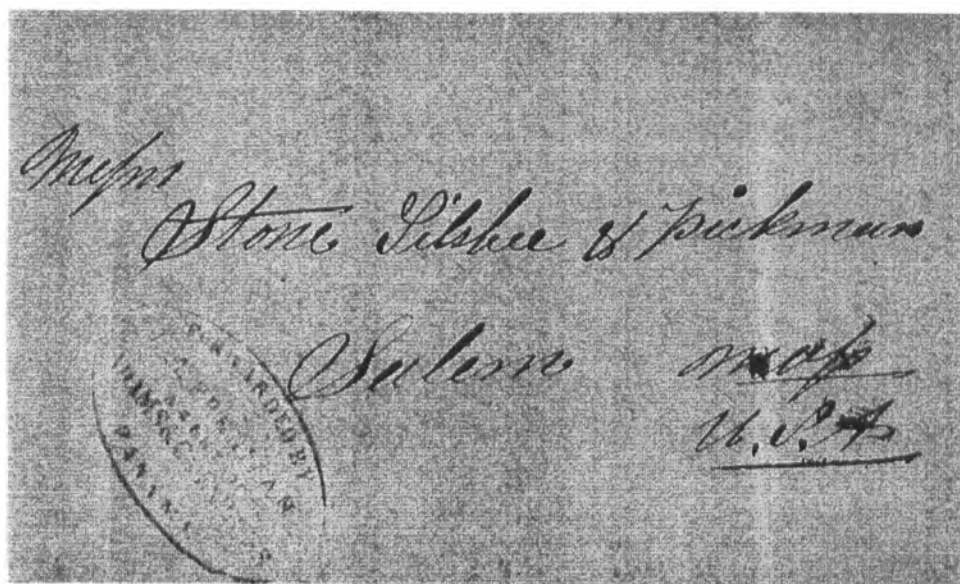 Messrs
Stone Silsbee & Pickman
Salem Mass
U.S.A
FORWARDED BY
ADAMS & CO
PANAMA